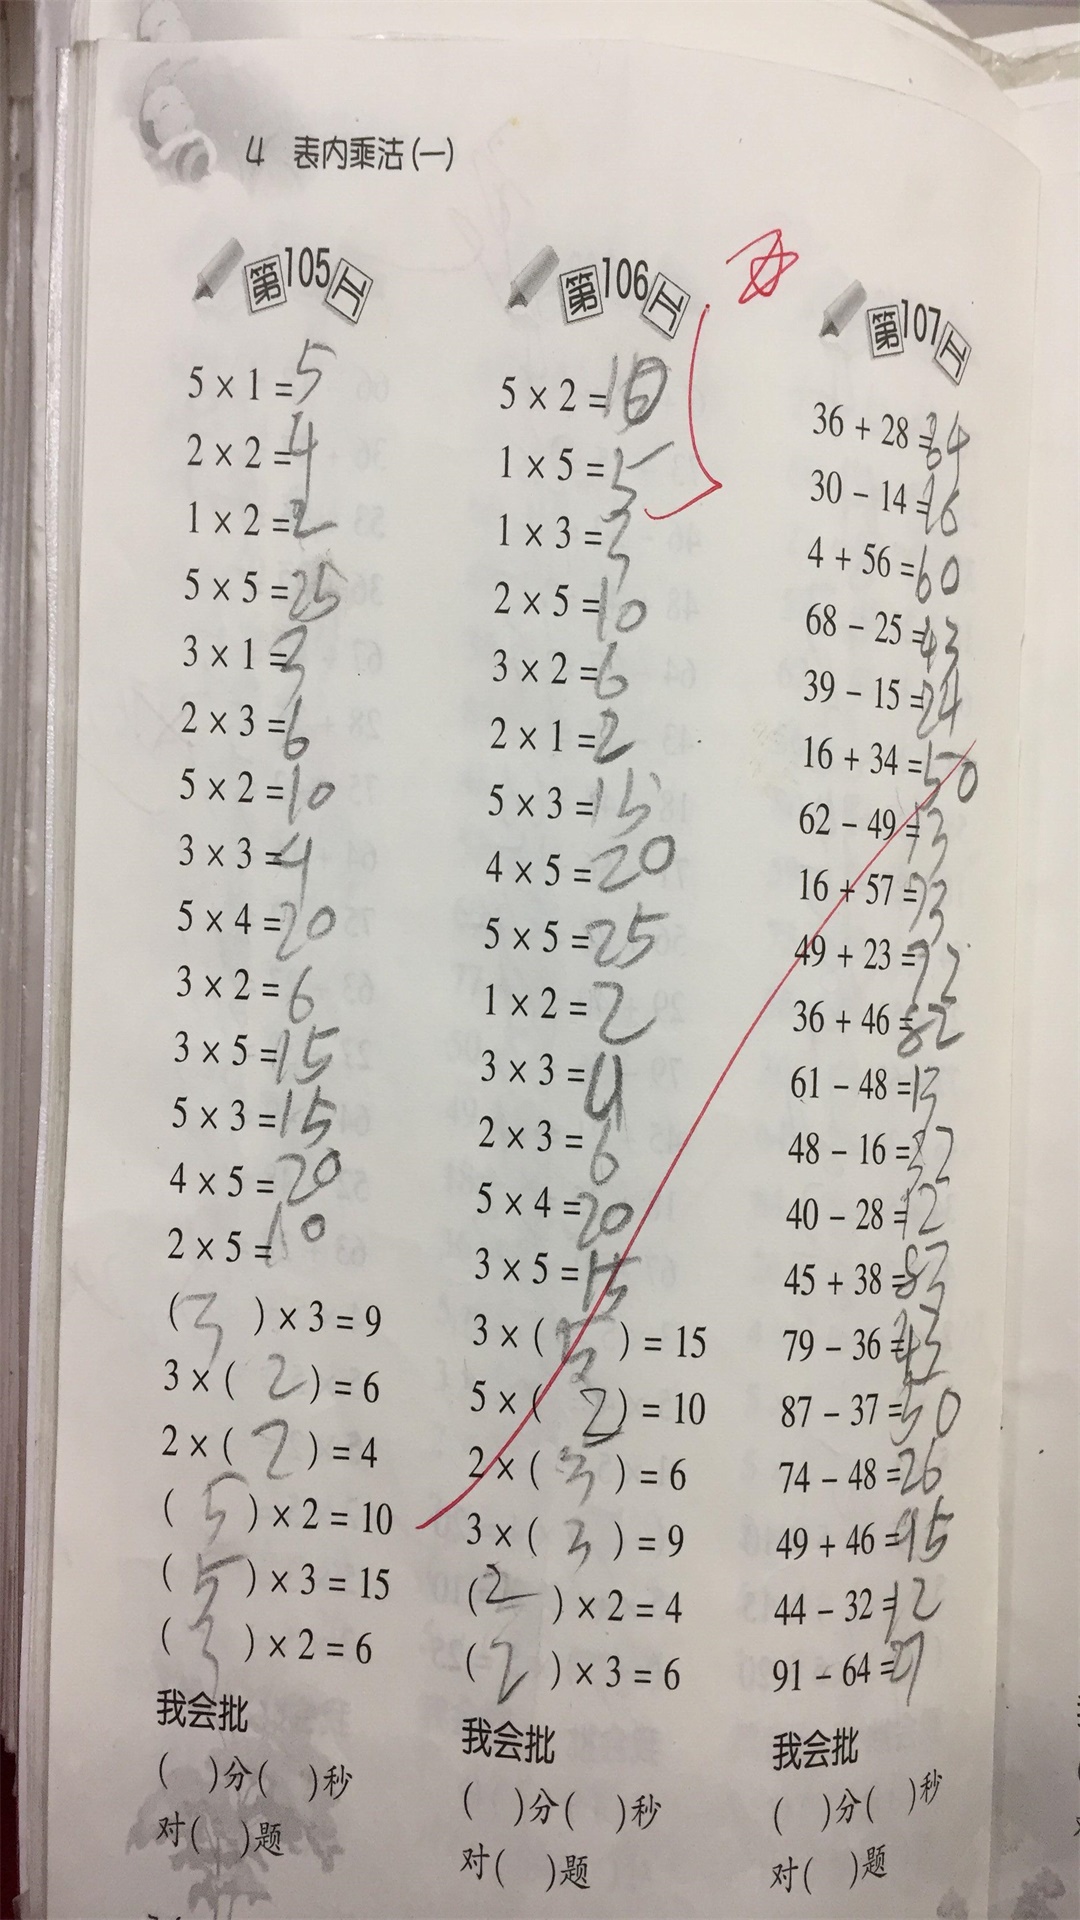 4 表内乘法(一)
第105工
5 × 1 = 5
2 × 2 = 4
1 × 2 = 2
5 × 5 = 25
3 × 1 = 3
2 × 3 = 6
5 × 2 = 10
3 × 3 = 4
5 × 4 = 20
3 × 2 = 6
3 × 5 = 15
5 × 3 = 15
4 × 5 = 20
2 × 5 = 10
( 3 ) × 3 = 9
3 × ( 2 ) = 6
2 × ( 2 ) = 4
( 5 ) × 2 = 10
( 5 ) × 3 = 15
( 3 ) × 2 = 6
我会批
( )分( )秒
对( )题
第106工
5 × 2 = 10
1 × 5 = 5
1 × 3 = 3
2 × 5 = 10
3 × 2 = 6
2 × 1 = 2
5 × 3 = 15
4 × 5 = 20
5 × 5 = 25
1 × 2 = 2
3 × 3 = 4
2 × 3 = 6
5 × 4 = 20
3 × 5 = 15
3 × ( 5 ) = 15
5 × ( 2 ) = 10
2 × ( 3 ) = 6
3 × ( 3 ) = 9
( 2 ) × 2 = 4
( 2 ) × 3 = 6
我会批
( )分( )秒
对( )题
第107工
36 + 28 = 64
30 - 14 = 16
4 + 56 = 60
68 - 25 = 43
39 - 15 = 24
16 + 34 = 50
62 - 49 = 13
16 + 57 = 73
49 + 23 = 72
36 + 46 = 82
61 - 48 = 13
48 - 16 = 32
40 - 28 = 12
45 + 38 = 83
79 - 36 = 43
87 - 37 = 50
74 - 48 = 26
49 + 46 = 95
44 - 32 = 12
91 - 64 = 27
我会批
( )分( )秒
对( )题